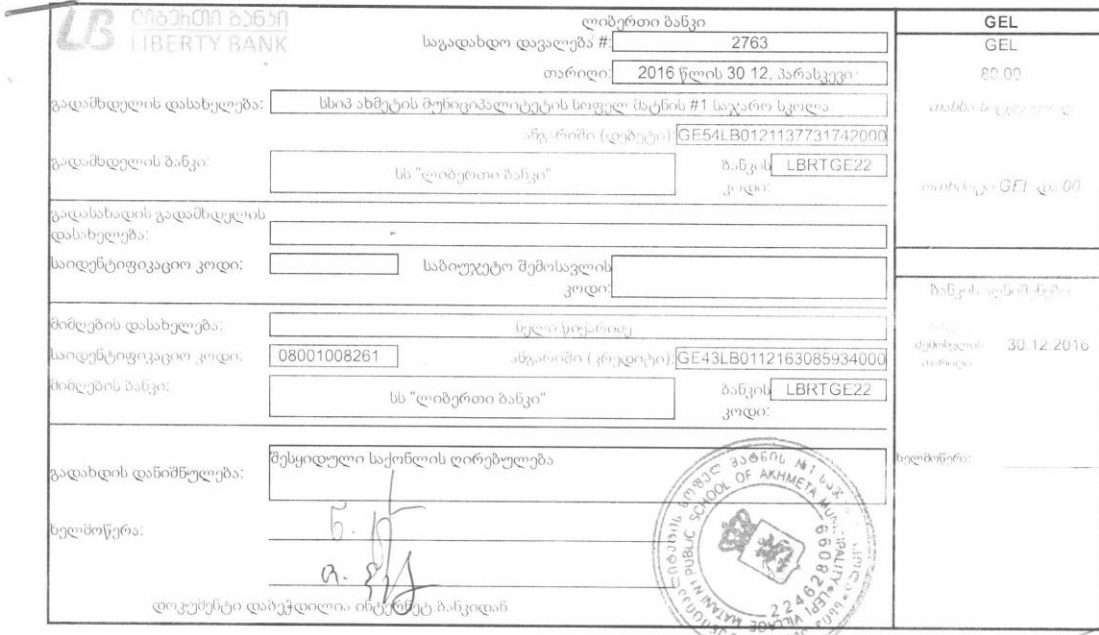 ლიბერთი ბანკი
LIBERTY BANK
ლიბერთი ბანკი
საგადახდო დავალება #: 2763
თარიღი: 2016 წლის 30 12, პარასკევი
გადამხდელის დასახელება: სსიპ ახმეტის მუნიციპალიტეტის სოფელ მატნის #1 საჯარო სკოლა
ანგარიში (დებეტი): GE54LB0121137731742000
გადამხდელის ბანკი: სს "ლიბერთი ბანკი" ბანკის კოდი: LBRTGE22
გადასახადის გადამხდელის
დასახელება:
საიდენტიფიკაციო კოდი: საბიუჯეტო შემოსავლის
კოდი:
მიმღების დასახელება: ნელი
საიდენტიფიკაციო კოდი: 08001008261 ანგარიში (კრედიტი): GE43LB0112163085934000
მიმღების ბანკი: სს "ლიბერთი ბანკი" ბანკის კოდი: LBRTGE22
გადახდის დანიშნულება: შესყიდული საქონლის ღირებულება
ხელმოწერა:
დოკუმენტი დაბეჭდილია ინტერნეტ ბანკიდან
GEL
GEL
80.00
თანხა სიტყვიერად
ოთხმოცი GEL და 00
ბანკის აღნიშვნები
შემოსვლის 30.12.2016
თარიღი
ხელმოწერა:
VILLAGE MATANI N1 PUBLIC SCHOOL OF AKHMETA MUNICIPALITY LEPL
224628099